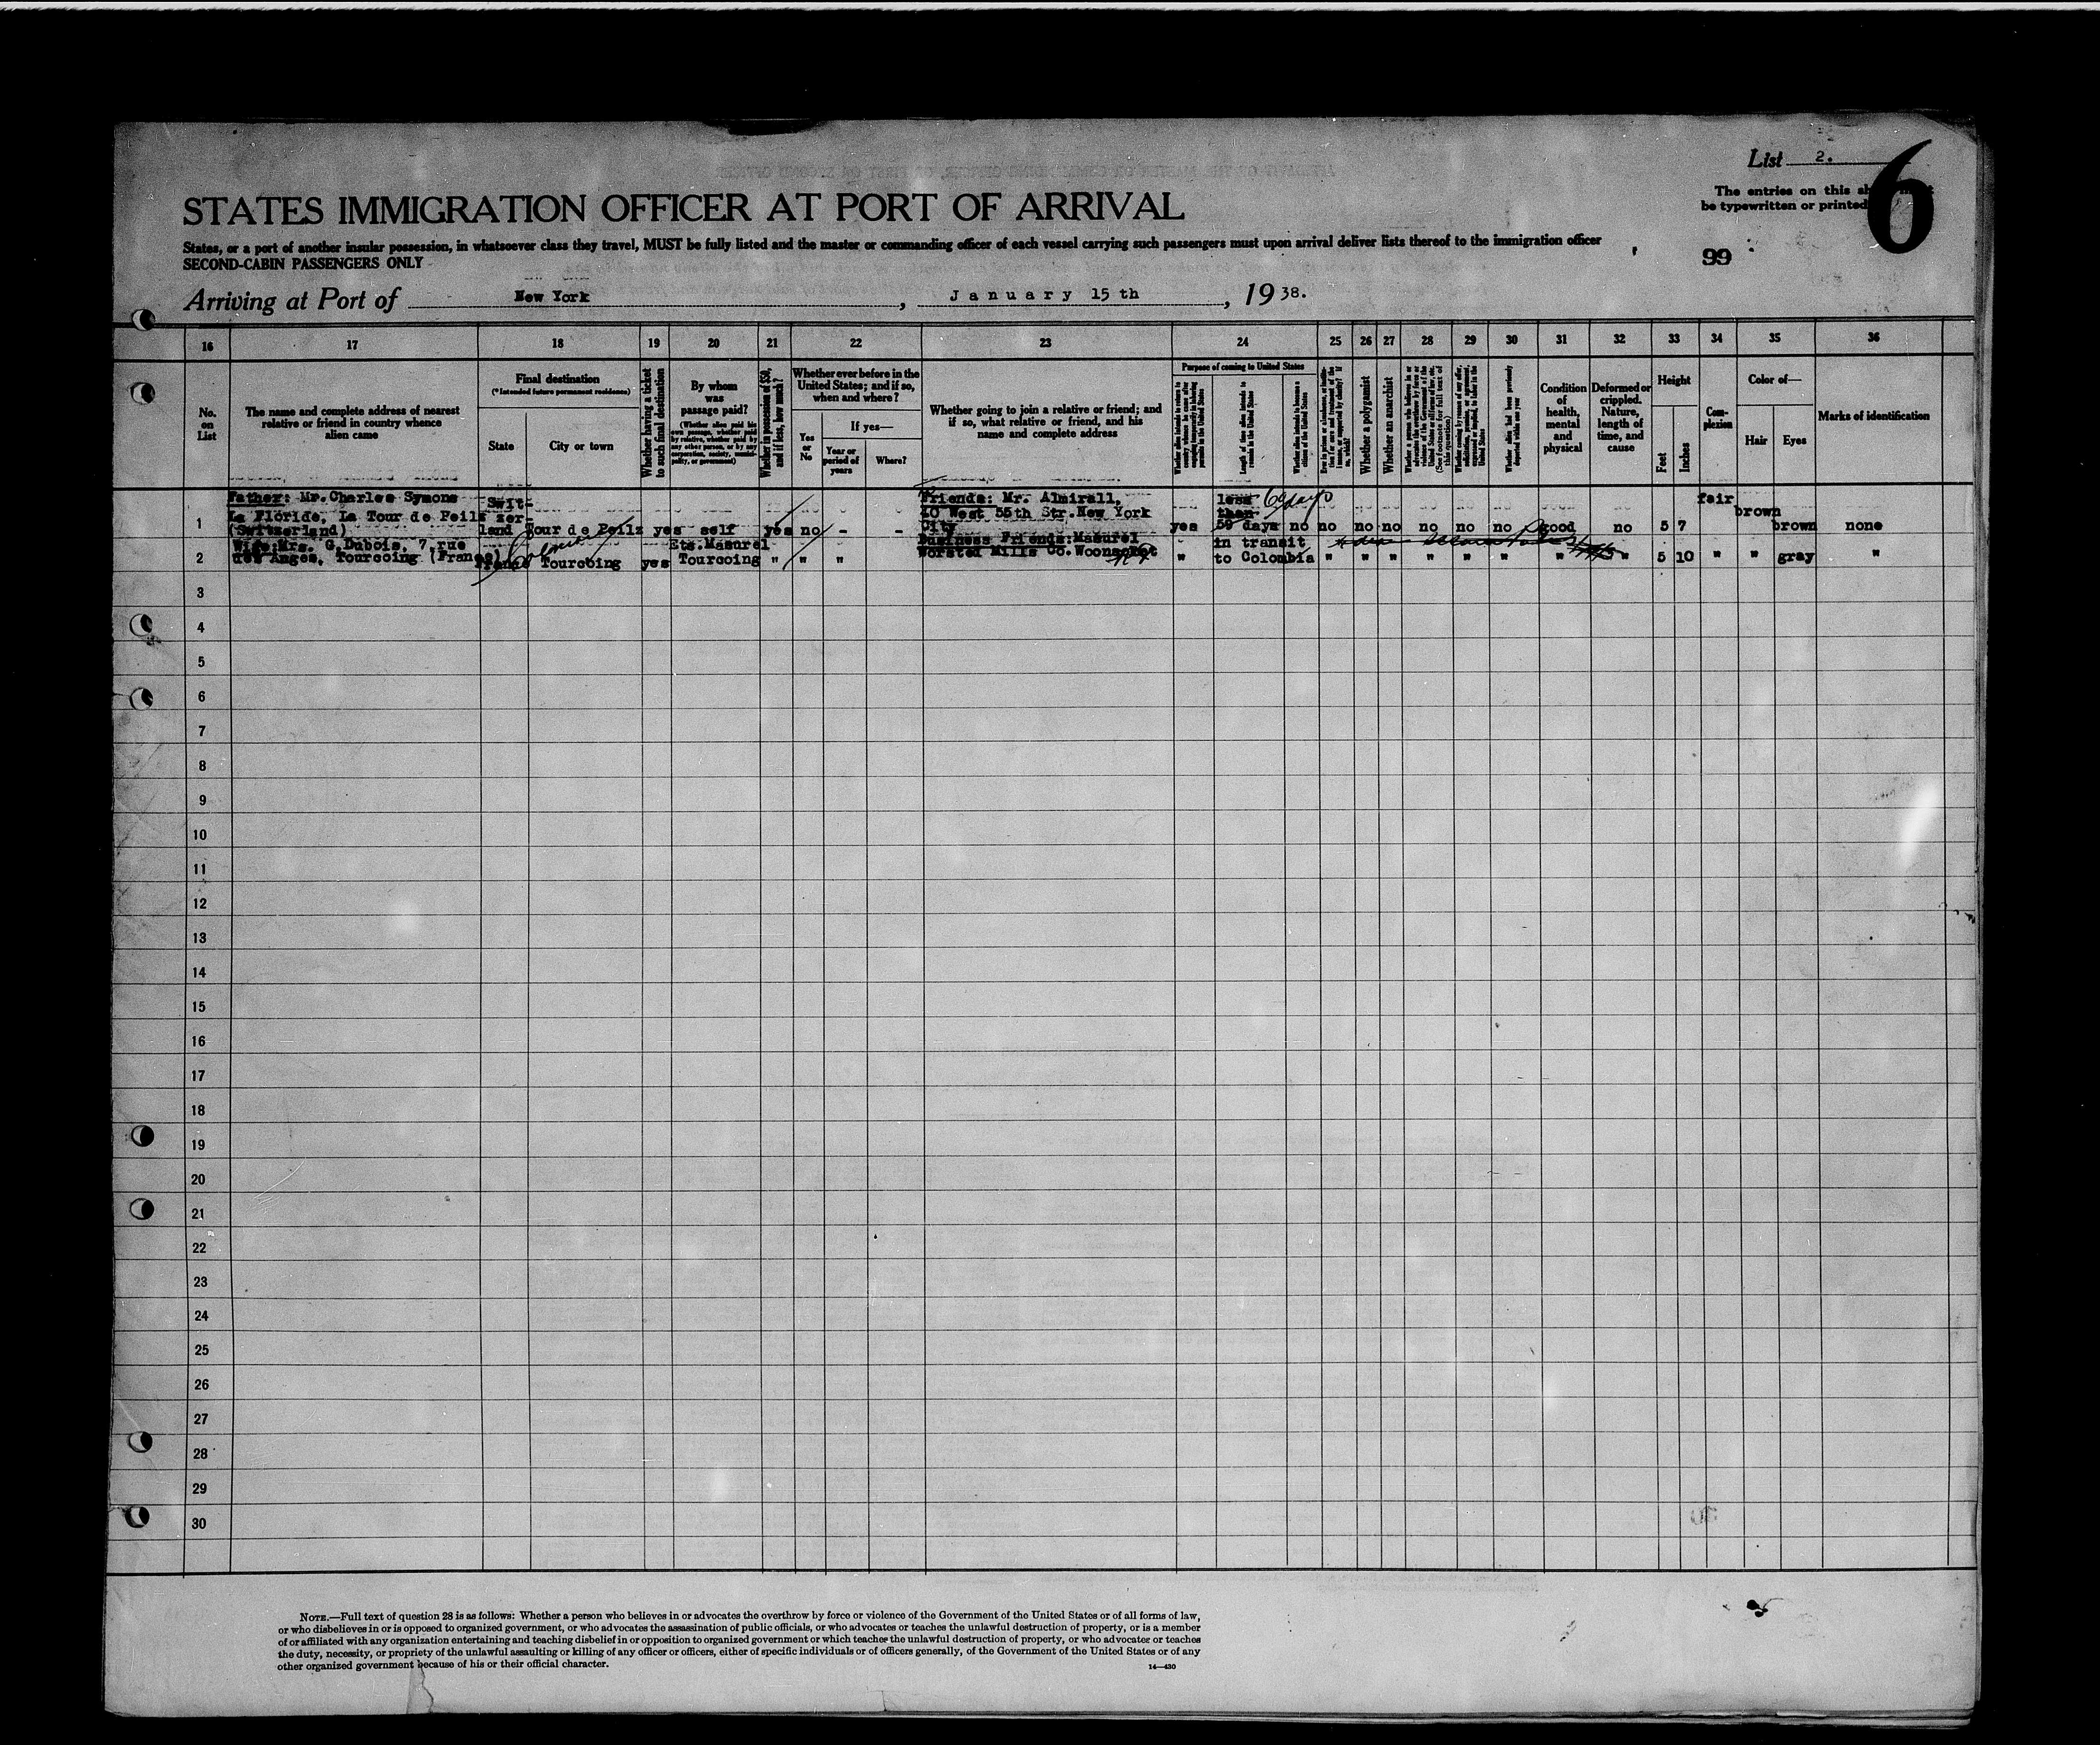 List 2.
6
The entries on this
be typewritten or printed
STATES IMMIGRATION OFFICER AT PORT OF ARRIVAL
States, or a port of another insular possession, in whatsoever class they travel, MUST be fully listed and the master or commanding officer of each vessel carrying such passengers must upon arrival deliver lists thereof to the immigration officer
SECOND-CABIN PASSENGERS ONLY
99
Arriving at Port of New York, January 15 th, 19 38.
16 17 18 19 20 21 22 23 24 25 26 27 28 29 30 31 32 33 34 35 36
No. on List
The name and complete address of nearest relative or friend in country whence alien came
Final destination
(*Intended future permanent residence)
State
City or town
Whether having a ticket to such final destination
By whom was passage paid?
(Whether alien paid his own passage, whether paid by relative, whether paid by any other person, or by any corporation, society, municipality, or government)
Whether in possession of $50, and if less, how much?
Whether ever before in the United States; and if so, when and where?
Yes or No
If yes—
Year or period of years
Where?
Whether going to join a relative or friend; and if so, what relative or friend, and his name and complete address
Purpose of coming to United States
Length of time alien intends to remain in the United States
Whether alien intends to become a citizen of the United States
Whether a polygamist
Whether an anarchist
Condition of health, mental and physical
Deformed or crippled. Nature, length of time, and cause
Height
Feet
Inches
Complexion
Color of—
Hair
Eyes
Marks of identification
Father: Mr. Charles Symons Swit- Friends: Mr. Almirall, less 60 days fair
La Floride, La Tour de Peilz zer- 40 West 55th Str. New York than brown
1 (Switzerland) land Tour de Peilz yes self yes no - - City yes 59 days no no no no no no no good no 5 7 brown none
Wife: Mrs. G. Dubois, 7, rue Ets. Masurel Business Friends: Masurel in transit
2 des Anges, Tourcoing (France) France Tourcoing yes Tourcoing " " " Worsted Mills Co. Woonsocket " to Colombia " " " " " " " " 5 10 " " gray "
3
4
5
6
7
8
9
10
11
12
13
14
15
16
17
18
19
20
21
22
23
24
25
26
27
28
29
30
NOTE.—Full text of question 28 is as follows: Whether a person who believes in or advocates the overthrow by force or violence of the Government of the United States or of all forms of law,
or who disbelieves in or is opposed to organized government, or who advocates the assassination of public officials, or who advocates or teaches the unlawful destruction of property, or is a member
of or affiliated with any organization entertaining and teaching disbelief in or opposition to organized government or which teaches the unlawful destruction of property, or who advocates or teaches
the duty, necessity, or propriety of the unlawful assaulting or killing of any officer or officers, either of specific individuals or of officers generally, of the Government of the United States or of any
other organized government because of his or their official character.
14—430